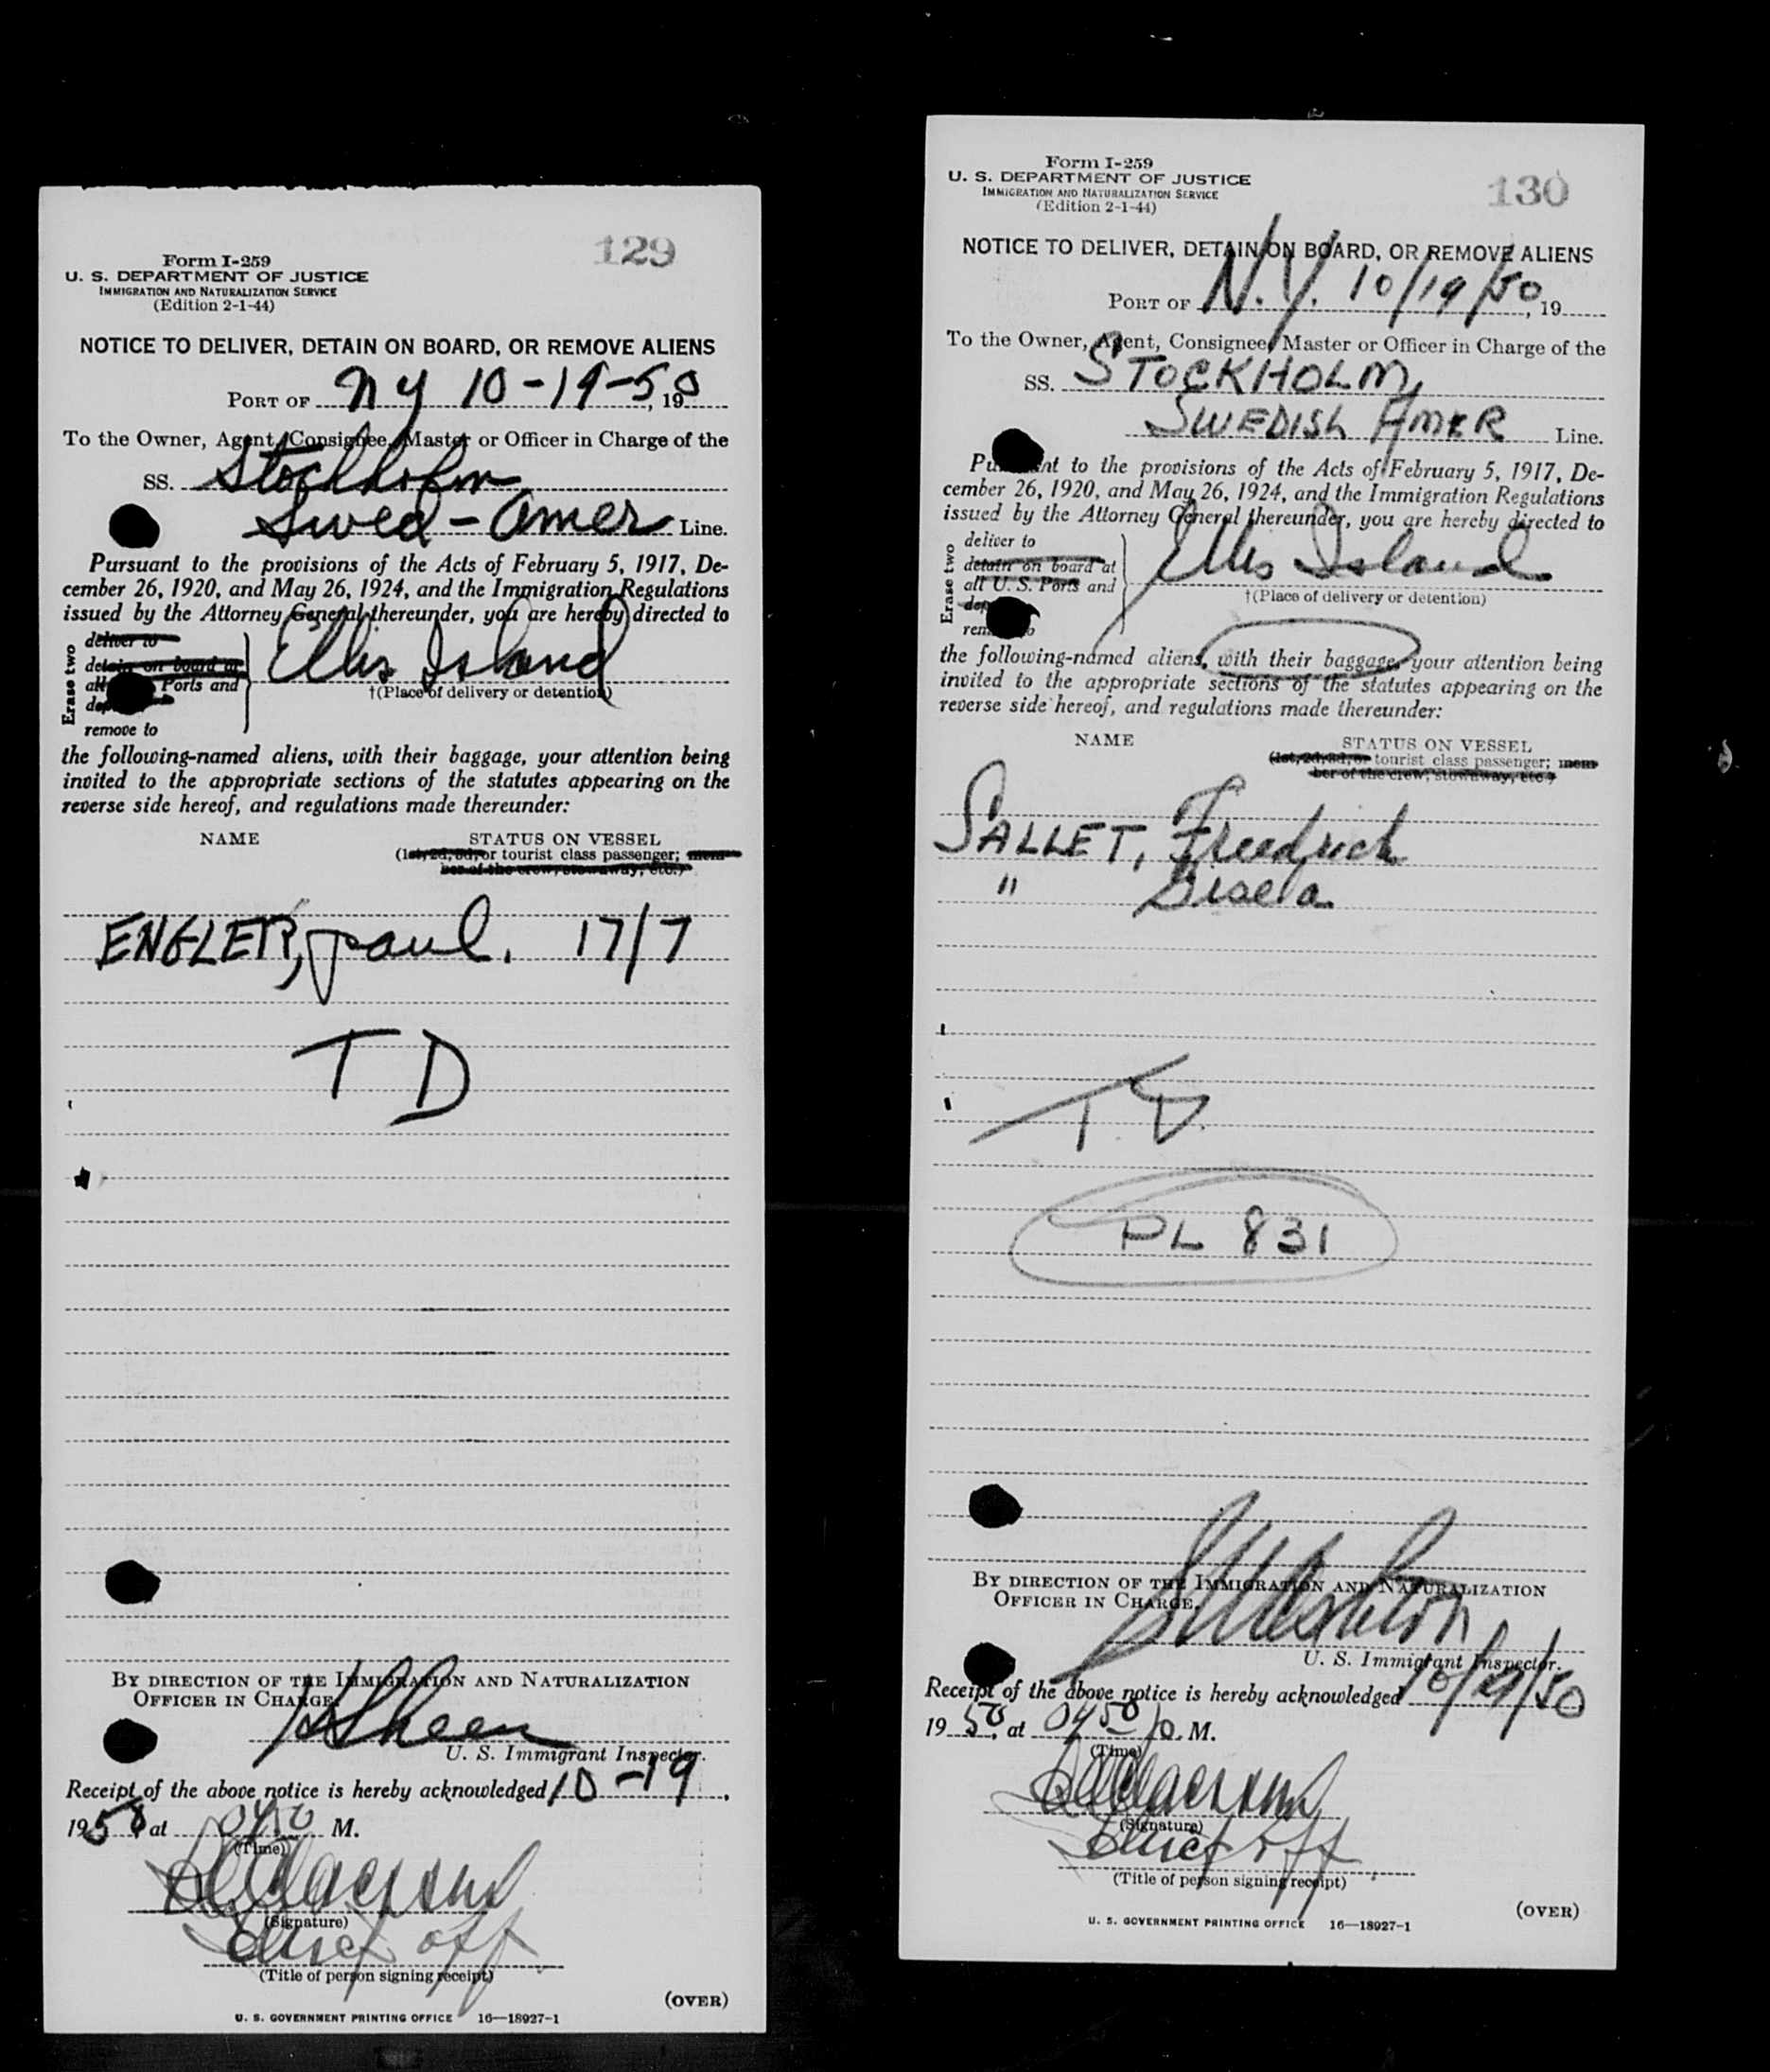 129
Form I-259
U. S. DEPARTMENT OF JUSTICE
IMMIGRATION AND NATURALIZATION SERVICE
(Edition 2-1-44)
NOTICE TO DELIVER, DETAIN ON BOARD, OR REMOVE ALIENS
PORT OF NY 10-19-50, 19
To the Owner, Agent, Consignee, Master or Officer in Charge of the
SS. Stockholm
Swed-Amer Line.
Pursuant to the provisions of the Acts of February 5, 1917, De-
cember 26, 1920, and May 26, 1924, and the Immigration Regulations
issued by the Attorney General thereunder, you are hereby directed to
Erase two
deliver to
detain on board at
all Ports and
remove to
Ellis Island
†(Place of delivery or detention)
the following-named aliens, with their baggage, your attention being
invited to the appropriate sections of the statutes appearing on the
reverse side hereof, and regulations made thereunder:
NAME STATUS ON VESSEL
(1st, 2d, 3d, or tourist class passenger; mem-
ber of the crew, stowaway, etc.)
ENGLER, paul. 17/7
T D
BY DIRECTION OF THE IMMIGRATION AND NATURALIZATION
OFFICER IN CHARGE.
U. S. Immigrant Inspector.
Receipt of the above notice is hereby acknowledged 10-19,
1950 at 0450 M.
(Time)
(Signature)
Chief off
(Title of person signing receipt)
(OVER)
U. S. GOVERNMENT PRINTING OFFICE 16—18927-1
130
Form I-259
U. S. DEPARTMENT OF JUSTICE
IMMIGRATION AND NATURALIZATION SERVICE
(Edition 2-1-44)
NOTICE TO DELIVER, DETAIN ON BOARD, OR REMOVE ALIENS
PORT OF N.Y. 10/19/50, 19
To the Owner, Agent, Consignee, Master or Officer in Charge of the
SS. STOCKHOLM,
SWEDISH AMER Line.
Pu nt to the provisions of the Acts of February 5, 1917, De-
cember 26, 1920, and May 26, 1924, and the Immigration Regulations
issued by the Attorney General thereunder, you are hereby directed to
Erase two
deliver to
detain on board at
all U. S. Ports and
Ellis Island
†(Place of delivery or detention)
the following-named aliens, with their baggage, your attention being
invited to the appropriate sections of the statutes appearing on the
reverse side hereof, and regulations made thereunder:
NAME STATUS ON VESSEL
(1st, 2d, 3d, or tourist class passenger; mem-
ber of the crew, stowaway, etc.)
SALLET, Freedrich
" Gisela
T. D.
PL 831
BY DIRECTION OF THE IMMIGRATION AND NATURALIZATION
OFFICER IN CHARGE.
U. S. Immigrant Inspector.
Receipt of the above notice is hereby acknowledged 10/19/50
1950, at 0450 M.
(Time)
(Signature)
Chief off
(Title of person signing receipt)
(OVER)
U. S. GOVERNMENT PRINTING OFFICE 16—18927-1